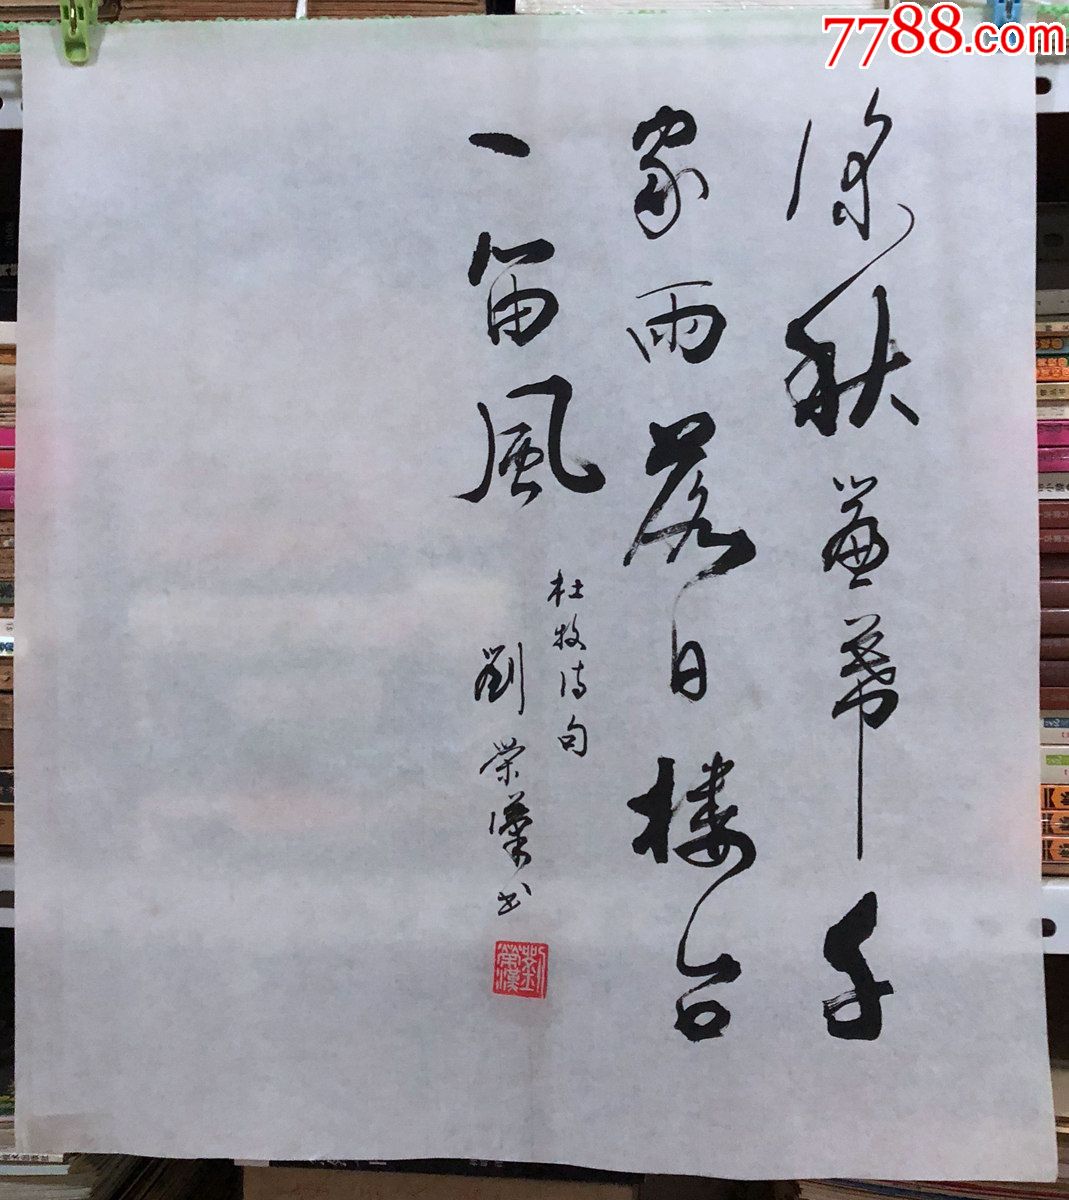 7788.com
深秋簾幕千
家雨落日楼台
一笛風
杜牧诗句
劉荣漢书
劉榮漢